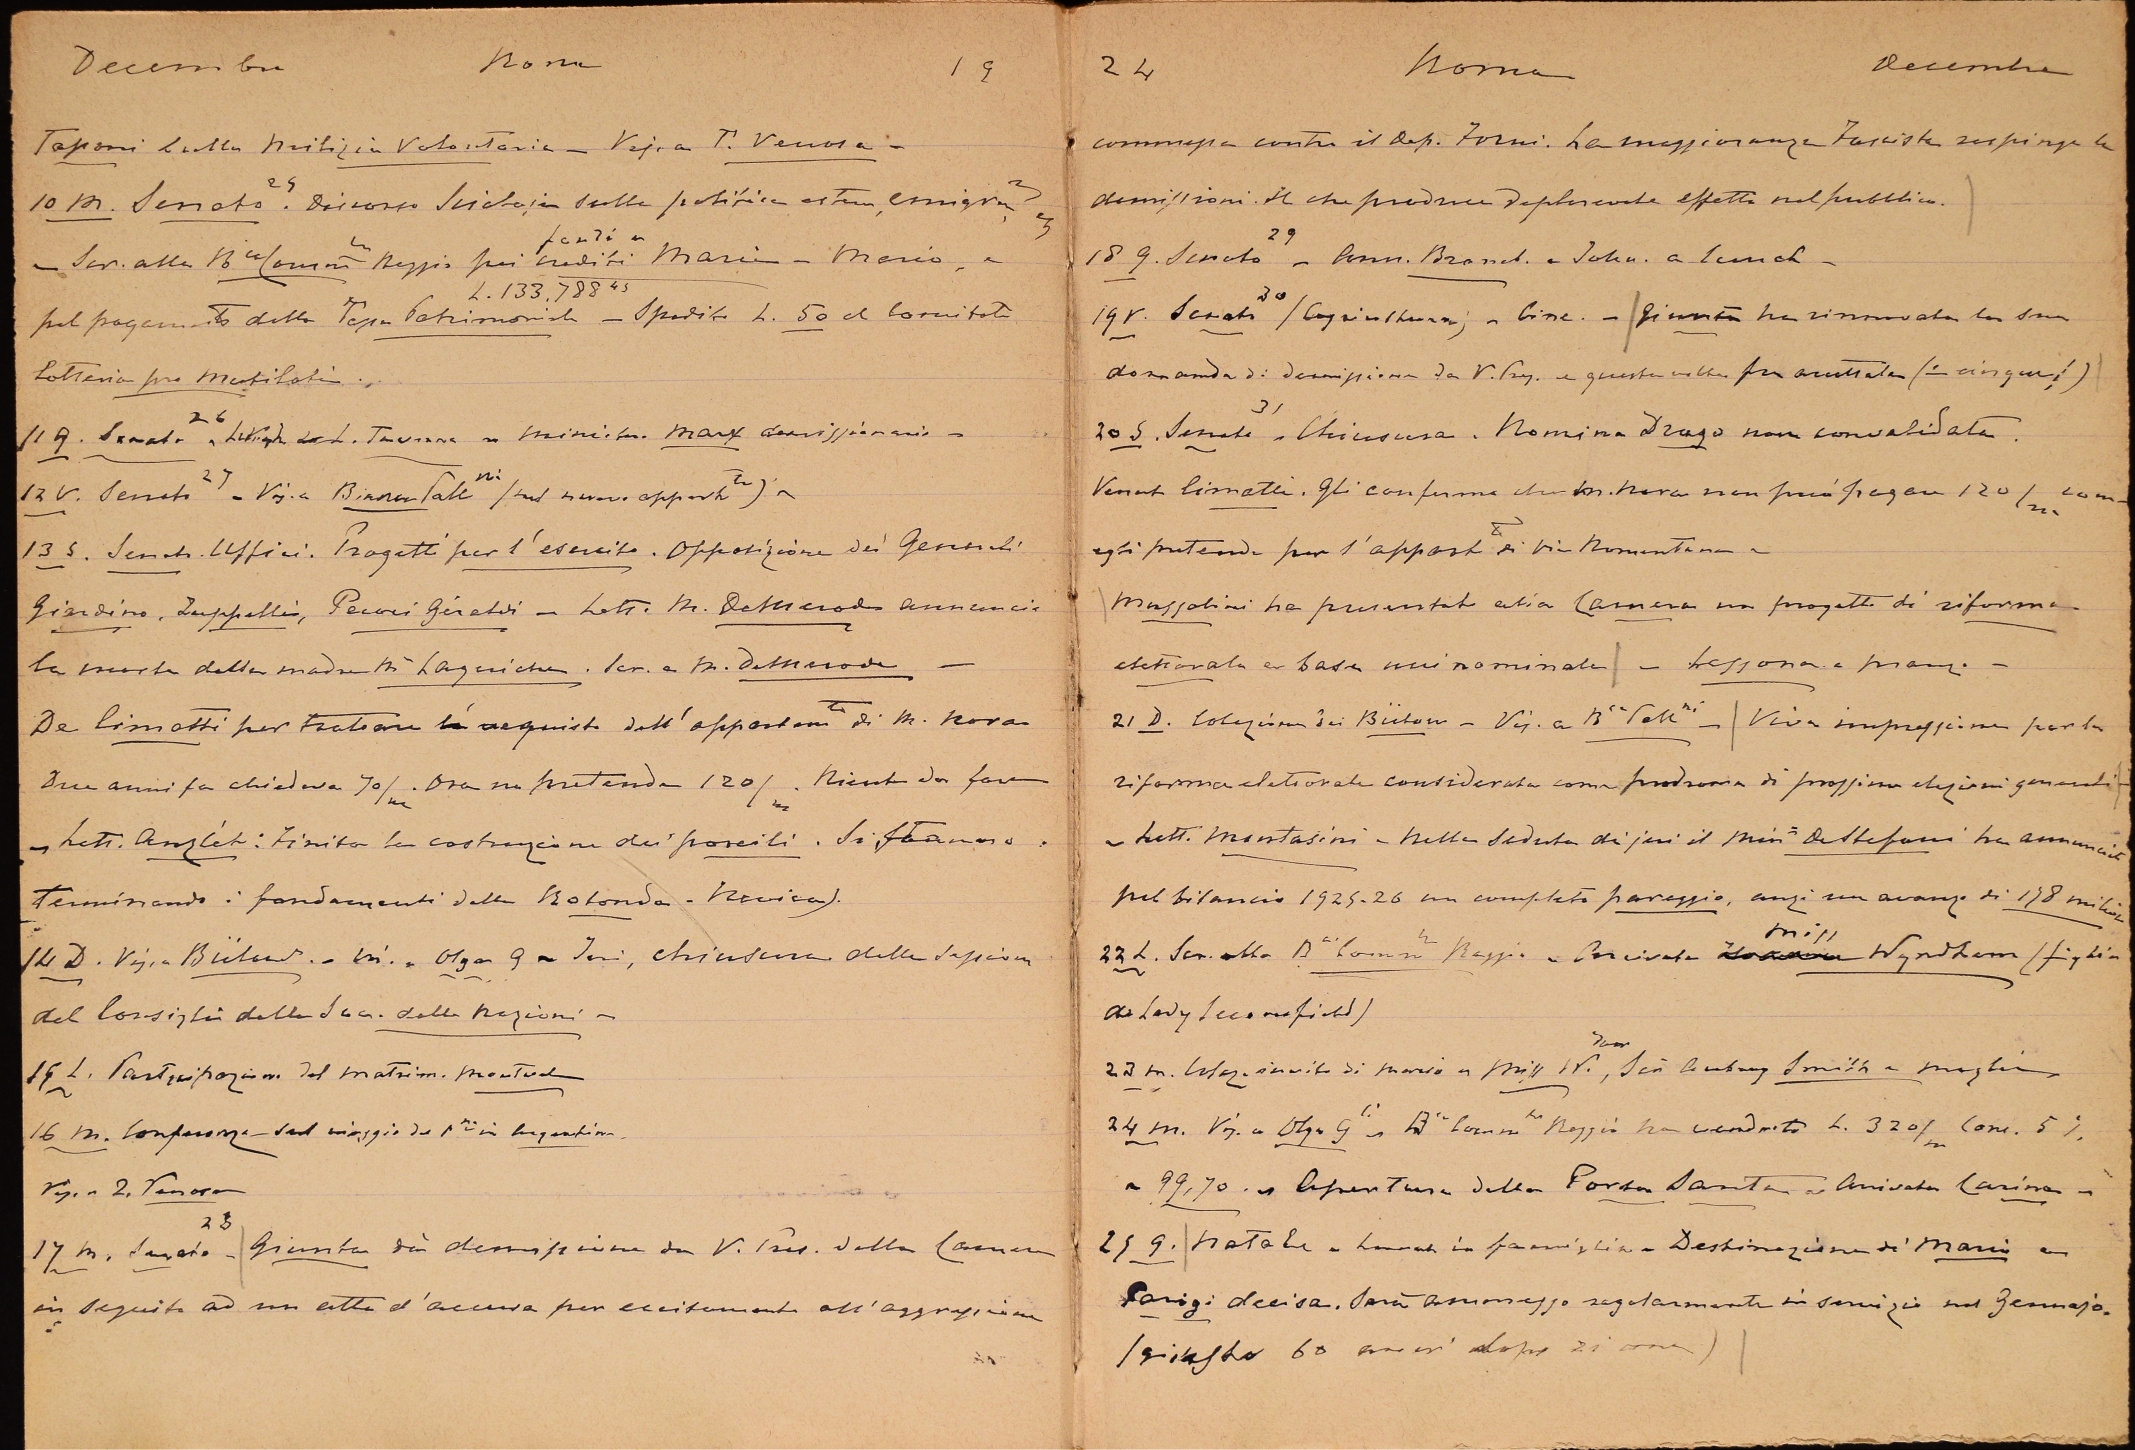 Decembre Roma 19
Taponi sulla Milizia Volontaria – Vis. a T. Venosa –
10 M. Senato 25. Discorso Scialoja sulla politica estera, emigra
– Scr. alla Reggio pei crediti fondi Maria – Mario, a
L. 133.788 45
pel pagamento della Tassa Patrimoniale – Spedite L. 50 al Comitato
Lotteria pro Mutilati.
11 G. Senato 26 L. Taverna – Ministro Marx demissionario –
12 V. Senato 27 – Vis. a (nel nuovo appart to) –
13 S. Senato. Uffici. Progetti per l'esercito. Opposizione dei Generali
Giardino, Zuppelli, Pecori Giraldi – Lett. M. DeMerode annuncia
la morte della madre Mse Laguiche. Scr. a M. DeMerode –
Da Cimatti per trattare acquisto dell'appartamto di M. Nora
Due anni fa chiedeva 70/m. Ora ne pretende 120/m. Niente da fare
– Lett. Anzlét: Finita la costruzione dei porcili. Si stanno
terminando i fondamenti della Rotonda –
14 D. Vis. a Bülow. – Vis. a Olga G – Ieri, chiusura della sessione
del Consiglio della Soc. delle Nazioni –
15 L. Partecipazione del matrim.
16 M. Conferenza sul viaggio del Pne in Argentina.
Vis. a Z. Venosa
17 M. Senato 28 – Giunta dà demissione da V. Pres. della Camera
in seguito ad un atto d'accusa per eccitamento all'aggressione
24 Roma Decembre
commessa contro il dep. Forni. La maggioranza Fascista respinge le
demissioni. Il che produce deplorevole effetto nel pubblico.
18 G. Senato 29 – Ann. Brand. e John. a lunch –
19 V. Senato 30 (Agricoltura) – Cine. – Giunta ha rinnovata la sua
domanda di demissione da V. Pres. e questa volta fu accettata
20 S. Senato 31. Chiusura. Nomina Drago non convalidata.
Venuto Cimatti. Gli confermo che M. Nora non può pagare 120/m come
egli pretende per l'appartto di Via Nomentana –
Mussolini ha presentato alla Camera un progetto di riforma
elettorale a base uninominale – Lessona a pranzo –
21 D. Colazione dei Bülow – Vis. a – Viva impressione per la
riforma elettorale considerata come prodroma di prossime elezioni generali
– Lett. Montasini – Nella seduta di jeri il Min. DeStefani ha annunciato
pel bilancio 1925-26 un completo pareggio, anzi un avanzo di 178 milioni
22 L. Scr. alla Reggio – Arrivata Miss Wyndham (figlia
de Lady Leconfield)
23 M. Colaz. invito di Mario a Miss W., Sir Aubrey Smith e moglie
24 M. Vis. a Olga G – Reggio ha venduto L. 320/m Cons. 5%
a 99,70. – Apertura della Porta Santa – Arrivata Carina –
25 G. Natale – Lunch in famiglia – Destinazione di Mario a
Parigi decisa. Sarà ammesso regolarmente in servizio nel Gennajo.
(giusto 60 anni dopo